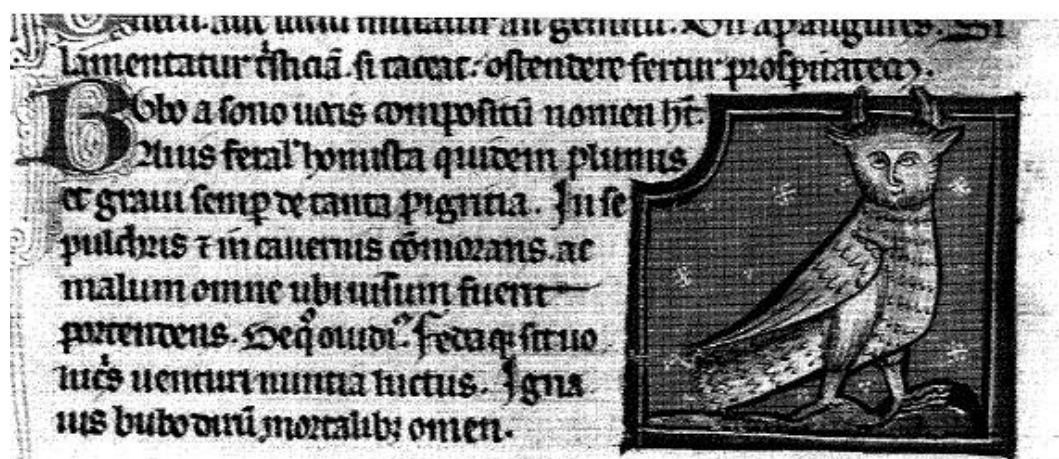 lamentatur tͥsticiā. si taceat: ostendere fertur prosperitatem.
Bubo a sono uocis compositū nomen ht̄.
Auis feral' honusta quidem plumis
et graui semp detenta pigritia. In se
pulchris ⁊ in cauernis cōmorans. ac
malum omne ubi uisum fuerit
portendens. De q̊ ouidi᷒. fedaq; fit uo
luc̄s uenturi nuntia luctus. Igna
uis bubo dirū mortalibꝫ omen.